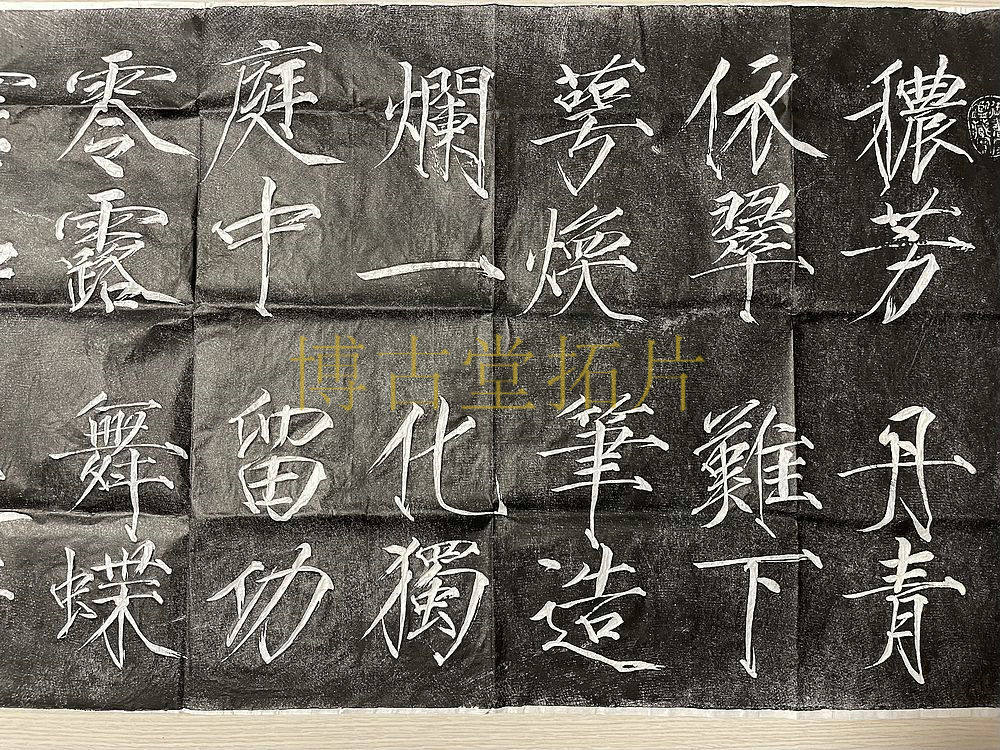 穠芳
依翠
萼煥
爛一
庭中
零露
丹青
難下
筆造
化獨
留功
舞蝶
博古堂拓片